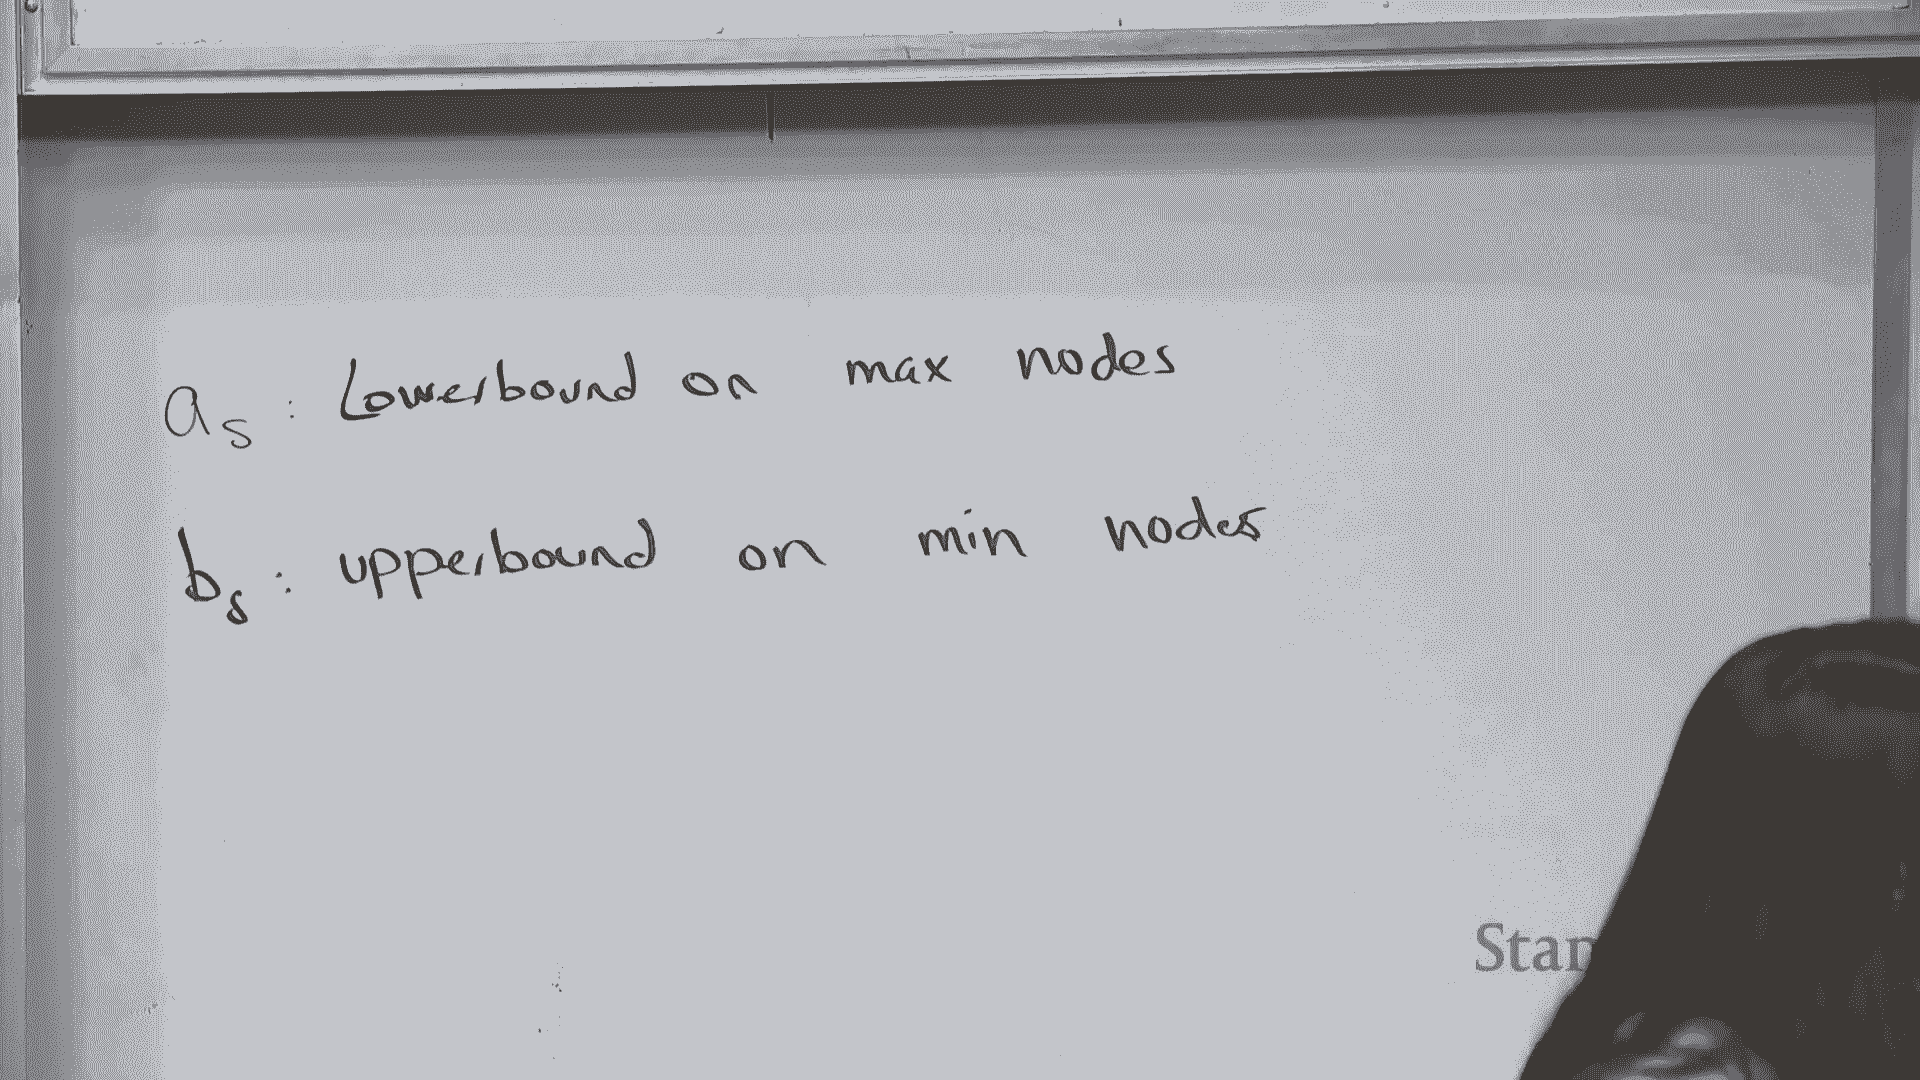 as : Lowerbound on max nodes
bs : upperbound on min nodes
Stan